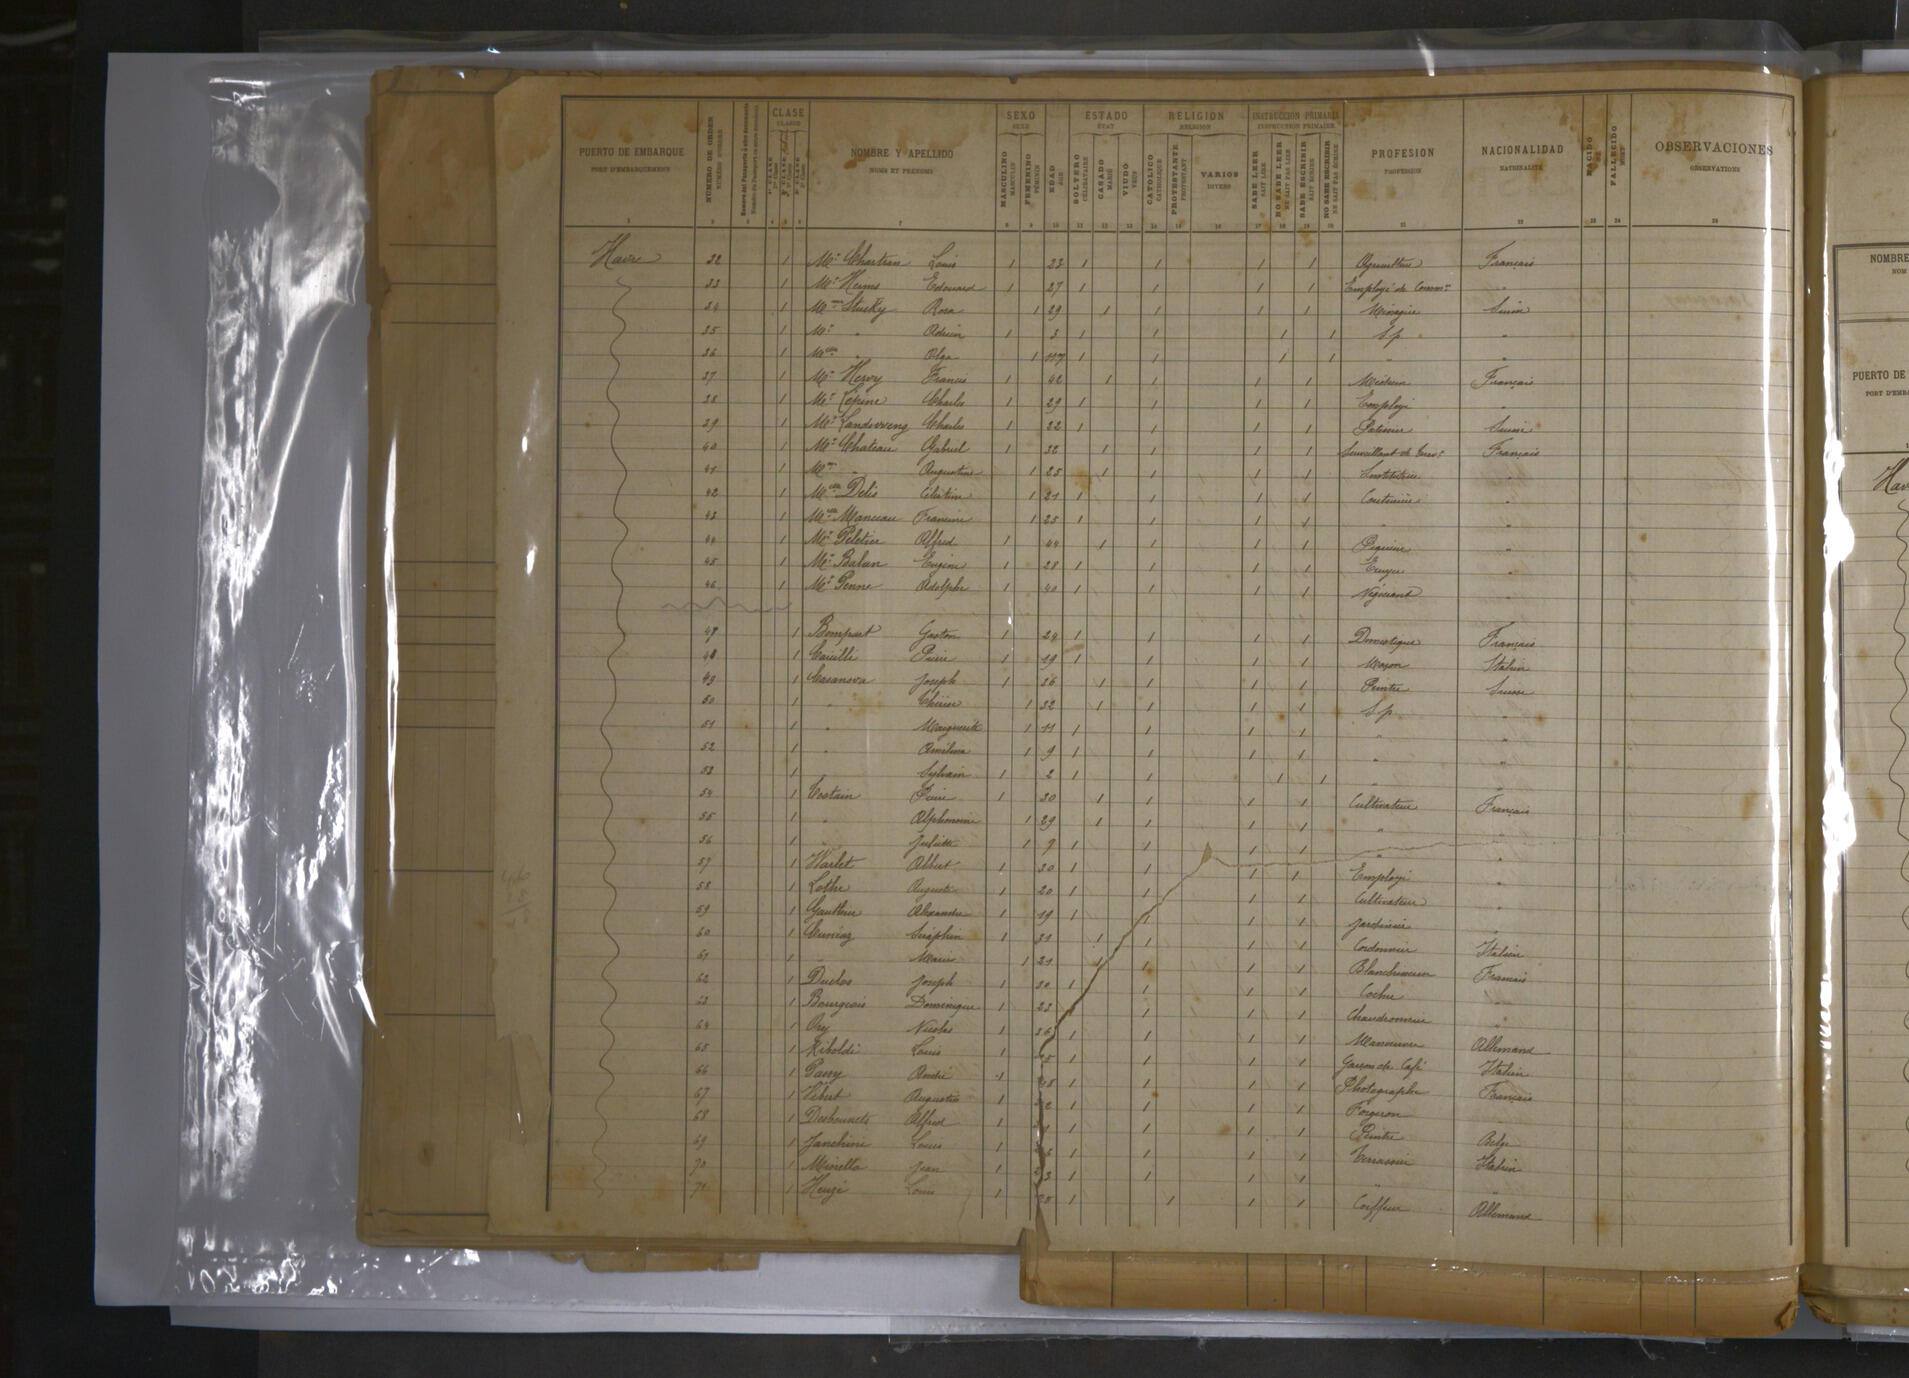 PUERTO DE EMBARQUE PORT D'EMBARQUEMENT
NÚMERO DE ORDEN NUMÉRO D'ORDRE
CLASE CLASSE
NOMBRE Y APELLIDO NOMS ET PRÉNOMS
SEXO SEXE
MASCULINO MASCULIN
FEMENINO FÉMININ
EDAD AGE
ESTADO ÉTAT
SOLTERO CÉLIBATAIRE
CASADO MARIÉ
VIUDO VEUF
RELIGION RELIGION
CATOLICO CATHOLIQUE
PROTESTANTE PROTESTANT
VARIOS DIVERS
INSTRUCCION PRIMARIA INSTRUCTION PRIMAIRE
SABE LEER SAIT LIRE
NO SABE LEER NE SAIT PAS LIRE
SABE ESCRIBIR SAIT ÉCRIRE
NO SABE ESCRIBIR NE SAIT PAS ÉCRIRE
PROFESION PROFESSION
NACIONALIDAD NATIONALITÉ
NACIDO NÉ
FALLECIDO MORT
OBSERVACIONES OBSERVATIONS
Havre 32 1 Mr Chartran Louis 1 23 1 1 1 1 Agriculteur Français
33 1 Mr Herms Edouard 1 27 1 1 1 1 Employé de Commce "
34 1 Mme Stucky Rosa 1 29 1 1 1 1 Ménagère Suisse
35 1 Mr " Adrien 1 3 1 1 1 1 S.p. "
36 1 Melle " Olga 1 1 1 1 1 " "
37 1 Mr Hervy Francis 1 42 1 1 1 1 Médecin Français
38 1 Mr Lépine Charles 1 29 1 1 1 1 Employé "
39 1 Mr Charles 1 22 1 1 1 1 Suisse
40 1 Mr Chateau Gabriel 1 32 1 1 1 1 Surveillant de Français
41 1 Mme " Augustine 1 25 1 1 1 1 Institutrice "
42 1 Melle Delis Célestine 1 21 1 1 1 1 Couturière "
43 1 Melle Manceau Francine 1 25 1 1 1 1 " "
44 1 Mr Peletier Alfred 1 44 1 1 1 1 "
45 1 Mr Balvan Eugène 1 28 1 1 1 1 "
46 1 Mr Penne Adolphe 1 40 1 1 1 1 Négociant "
47 1 Bompart Gaston 1 24 1 1 1 1 Domestique Français
48 1 Pierre 1 19 1 1 1 1 Maçon Italien
49 1 Casanova Joseph 1 36 1 1 1 1 Peintre Suisse
50 1 " Thérèse 1 32 1 1 1 1 S.p. "
51 1 " Marguerite 1 11 1 1 1 1 " "
52 1 " 1 9 1 1 1 1 " "
53 1 " Sylvain 1 2 1 1 1 1 " "
54 1 Costain Pierre 1 30 1 1 1 1 Cultivateur Français
55 1 " Alphonsine 1 29 1 1 1 1 " "
56 1 " Juliette 1 1 1 1 1 " "
57 1 Warlet Albert 1 30 1 1 1 1 Employé "
58 1 Lothe Auguste 1 20 1 1 1 1 Cultivateur "
59 1 Gauthier Alexandre 1 19 1 1 1 1 Jardinier "
60 1 Séraphin 1 31 1 1 1 1 Cordonnier Italien
61 1 " Marie 1 21 1 1 1 1 Blanchisseuse Français
62 1 Duclos Joseph 1 30 1 1 1 1 Cocher "
63 1 Bourgeois Dominique 1 23 1 1 1 1 Chaudronnier "
64 1 Ory Nicolas 1 1 1 1 1 Manœuvre Allemand
65 1 Riboldi Louis 1 1 1 1 1 Garçon de Café Italien
66 1 Passy André 1 1 1 1 1 Photographe Français
67 1 Vibert Auguste 1 1 1 1 1 Forgeron "
68 1 Desbonnets Alfred 1 1 1 1 1 Peintre Belge
69 1 Janchini Louis 1 1 1 1 1 Terrassier Italien
70 1 Minetto Jean 1 1 1 1 1 " "
71 1 Heuzé Louis 1 1 1 1 1 Coiffeur Allemand
NOMBRE
NOM
PUERTO DE
PORT D'EMBA